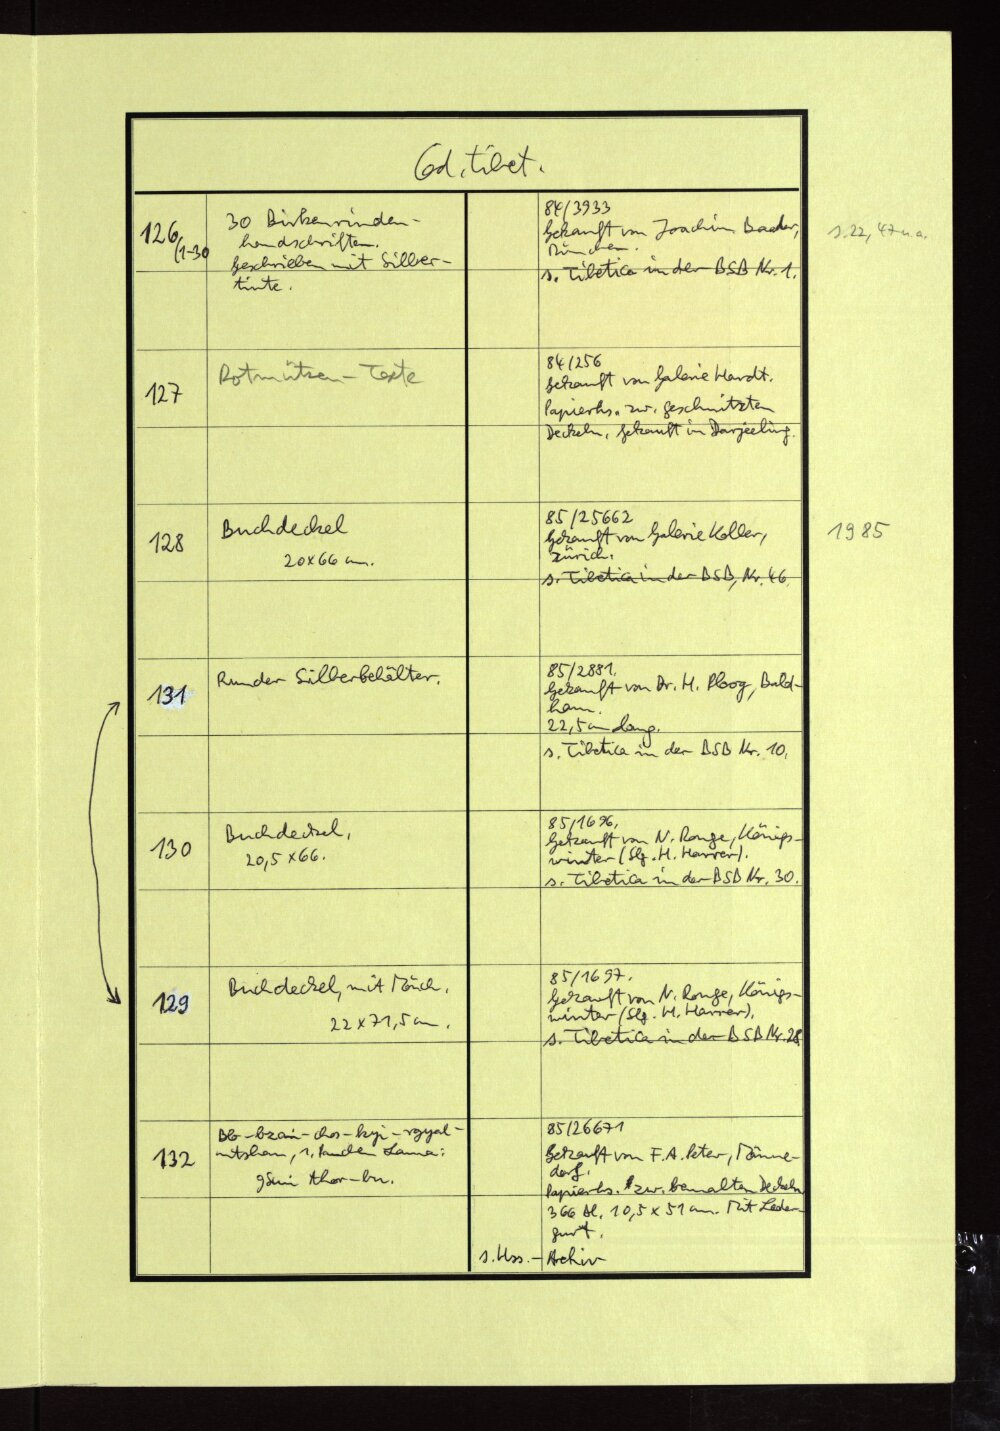 Cod. tibet.
126
(1-30
30 Birkenrinden-
handschriften.
Geschrieben mit Silber-
tinte.
84/3933
Gekauft von Joachim Baader,
München.
s. Tibetica in der BSB Nr. 1.
s. 22, 47 u.a.
127
Rotmützen-Texte
84/256
Gekauft von Galerie Hardt.
Papierhs. zw. geschnitzten
Deckeln, gekauft in Darjeeling.
128
Buchdeckel
20x66 cm.
85/25662
Gekauft von Galerie Koller,
Zürich.
s. Tibetica in der BSB, Nr. 46.
1985
131
Runder Silberbehälter.
85/2881.
Gekauft von Dr. H. Ploog, Bald-
ham.
22,5 cm lang.
s. Tibetica in der BSB Nr. 10.
130
Buchdeckel,
20,5x66.
85/1696.
Gekauft von N. Ronge, Königs-
winter (Slg. H. Harrer).
s. Tibetica in der BSB Nr. 30.
129
Buchdeckel, mit Mönch.
22x71,5 cm.
85/1697.
Gekauft von N. Ronge, Königs-
winter (Slg. H. Harrer).
s. Tibetica in der BSB Nr. 28
132
chos-kyi-rgyal-
mtshan, 1. Panchen Lama:
thor-bu.
85/26671
Gekauft von F.A. Peter, Männe-
dorf.
Papierhs. zw. bemalten Deckeln
366 Bl. 10,5x51 cm. Mit Leder-
gurt.
s. Hss.-Archiv